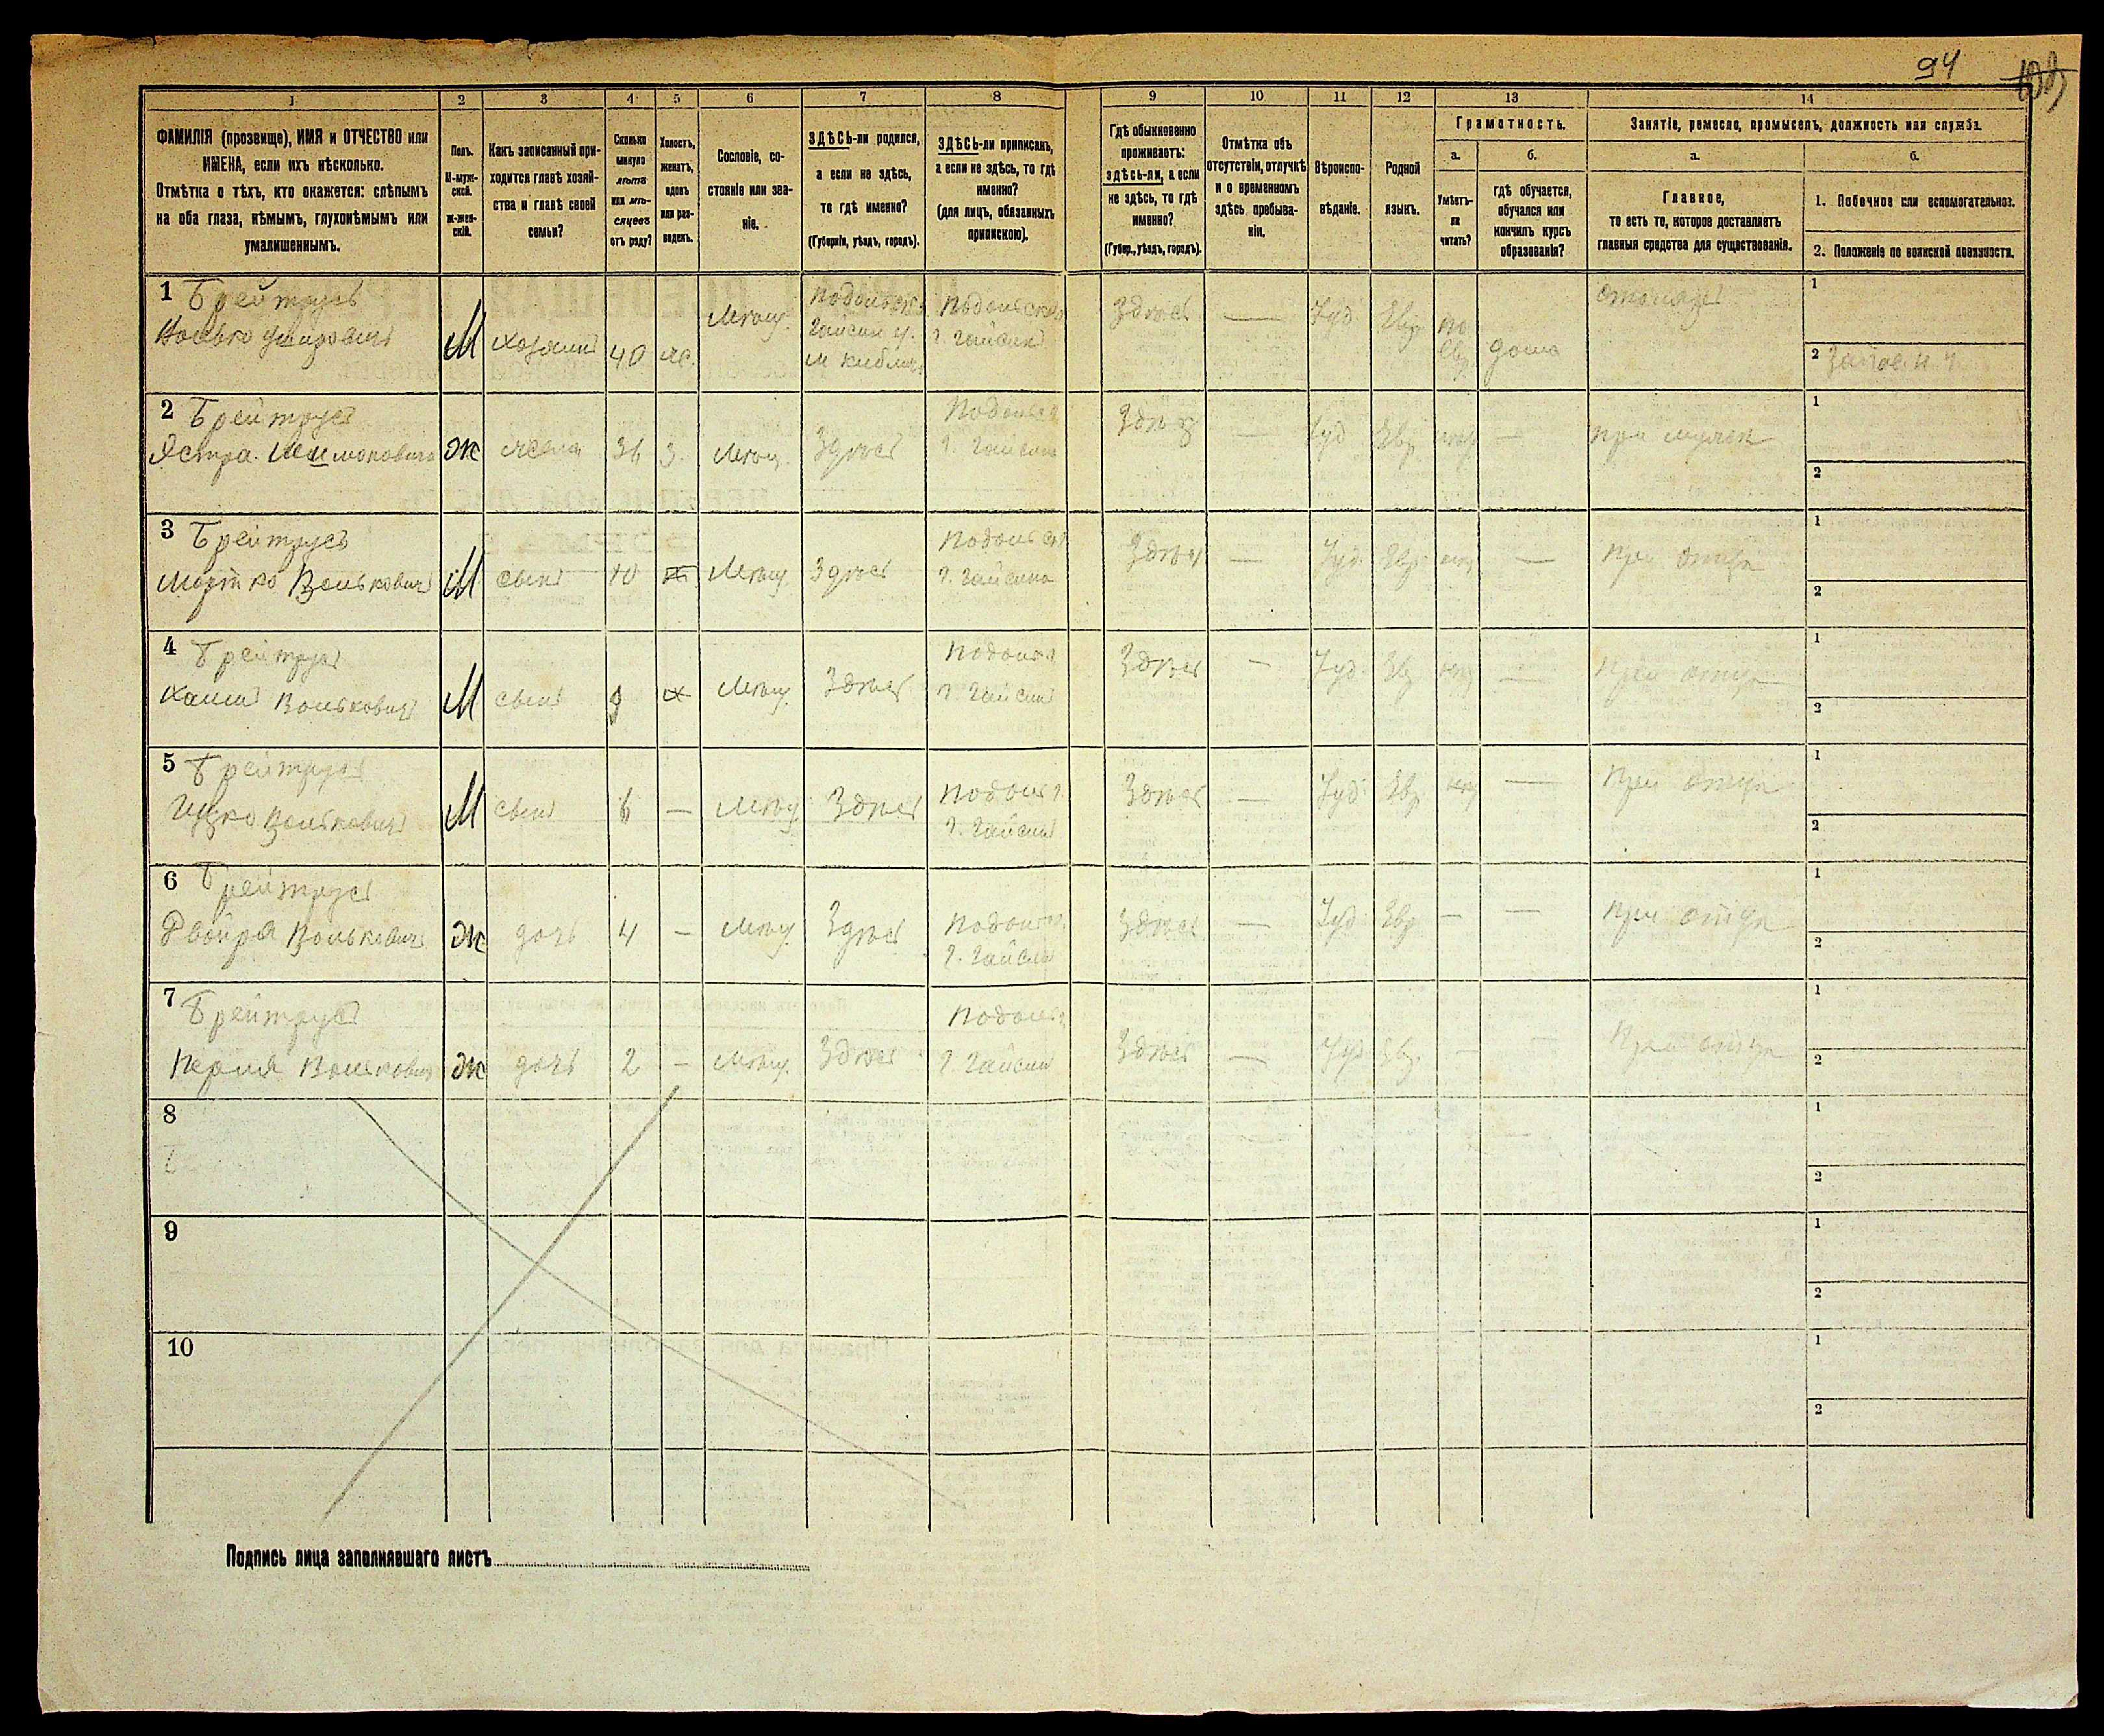 94
1 2 3 4 5 6 7 8 9 10 11 12 13 14
ФАМИЛІЯ (прозвище), ИМЯ и ОТЧЕСТВО или
ИМЕНА, если ихъ нѣсколько.
Отмѣтка о тѣхъ, кто окажется: слѣпымъ
на оба глаза, нѣмымъ, глухонѣмымъ или
умалишеннымъ.
Полъ.
М-муж-
ской.
Ж-жен-
скій.
Какъ записанный при-
ходится главѣ хозяй-
ства и главѣ своей
семьи?
Сколько
минуло
лѣтъ
или мѣ-
сяцевъ
отъ роду?
Холостъ,
женатъ,
вдовъ
или раз-
веденъ.
Сословіе, со-
стояніе или зва-
ніе.
ЗДѢСЬ-ли родился,
а если не здѣсь,
то гдѣ именно?
(Губернія, уѣздъ, городъ).
ЗДѢСЬ-ли приписанъ,
а если не здѣсь, то гдѣ
именно?
(для лицъ, обязанныхъ
припискою).
Гдѣ обыкновенно
проживаетъ:
здѣсь-ли, а если
не здѣсь, то гдѣ
именно?
(Губер., уѣздъ, городъ).
Отмѣтка объ
отсутствіи, отлучкѣ
и о временномъ
здѣсь пребыва-
ніи.
Вѣроиспо-
вѣданіе.
Родной
языкъ.
Грамотность.
а.
Умѣетъ-
ли
читать?
б.
гдѣ обучается,
обучался или
кончилъ курсъ
образованія?
Занятіе, ремесло, промыселъ, должность или служба.
а.
Главное,
то есть то, которое доставляетъ
главныя средства для существованія.
б.
1. Побочное или вспомогательное.
2. Положеніе по воинской повинности.
1 Брейтрусъ
М хозяинъ 40 ж. Мѣщ.
Подольск.
Гайсин у.
Подольской
г. Гайсинъ
Здѣсь — Іуд. Евр. по
Евр дома
столяръ
1
2
2 Брейтрусъ
Ж жена 36 з. Мѣщ. Здѣсь
Подольск
г. Гайсина
Здѣсь — Іуд Евр —
при мужѣ
1
2
3 Брейтрусъ
Волькович М сынъ 10 Мѣщ. Здѣсь
г. Гайсина
Здѣсь — Іуд. Евр —
При отцѣ
1
2
4 Брейтрусъ
Хаимъ Волькович М сынъ 9 Мѣщ. Здѣсь
г. Гайсинъ
Здѣсь — Іуд Евр —
При отцѣ
1
2
5 Брейтрусъ
Ицко Волькович М сынъ 6 — Мѣщ. Здѣсь
г. Гайсинъ
Здѣсь — Іуд Евр —
При отцѣ
1
2
6 Брейтрусъ
Двойра Волькович Ж дочь 4 — Мѣщ. Здѣсь
г. Гайсин
Здѣсь — Іуд Евр — —
При отцѣ
1
2
7 Брейтрусъ
Перля Волькович Ж дочь 2 — Мѣщ. Здѣсь
г. Гайсин
Здѣсь — Іуд Евр. — —
При отцѣ
1
2
8
1
2
9
1
2
10
1
2
Подпись лица заполнявшаго листъ